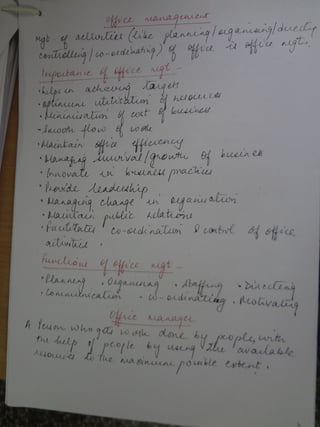 office management
mgt of activities (like planning/organising/directing
controlling/co-ordinating) of office is office mgt.
Importance of office mgt -
• helps in achieving targets
• optimum utilisation of resources
• Minimisation of cost of business
• Smooth flow of work
• Maintain office efficiency
• Managing survival/growth of business
• Innovate in business practices
• Provide leadership
• Managing change in organisation
• Maintain public relations
• Facilitates co-ordination & control of office
activities.
Functions of office mgt -
• Planning • Organising • Staffing • Directing
• Communication • co-ordinating • Motivating
Office manager
A Person who gets work done by people, with
the help of people by using the available
resources to the maximum possible extent.